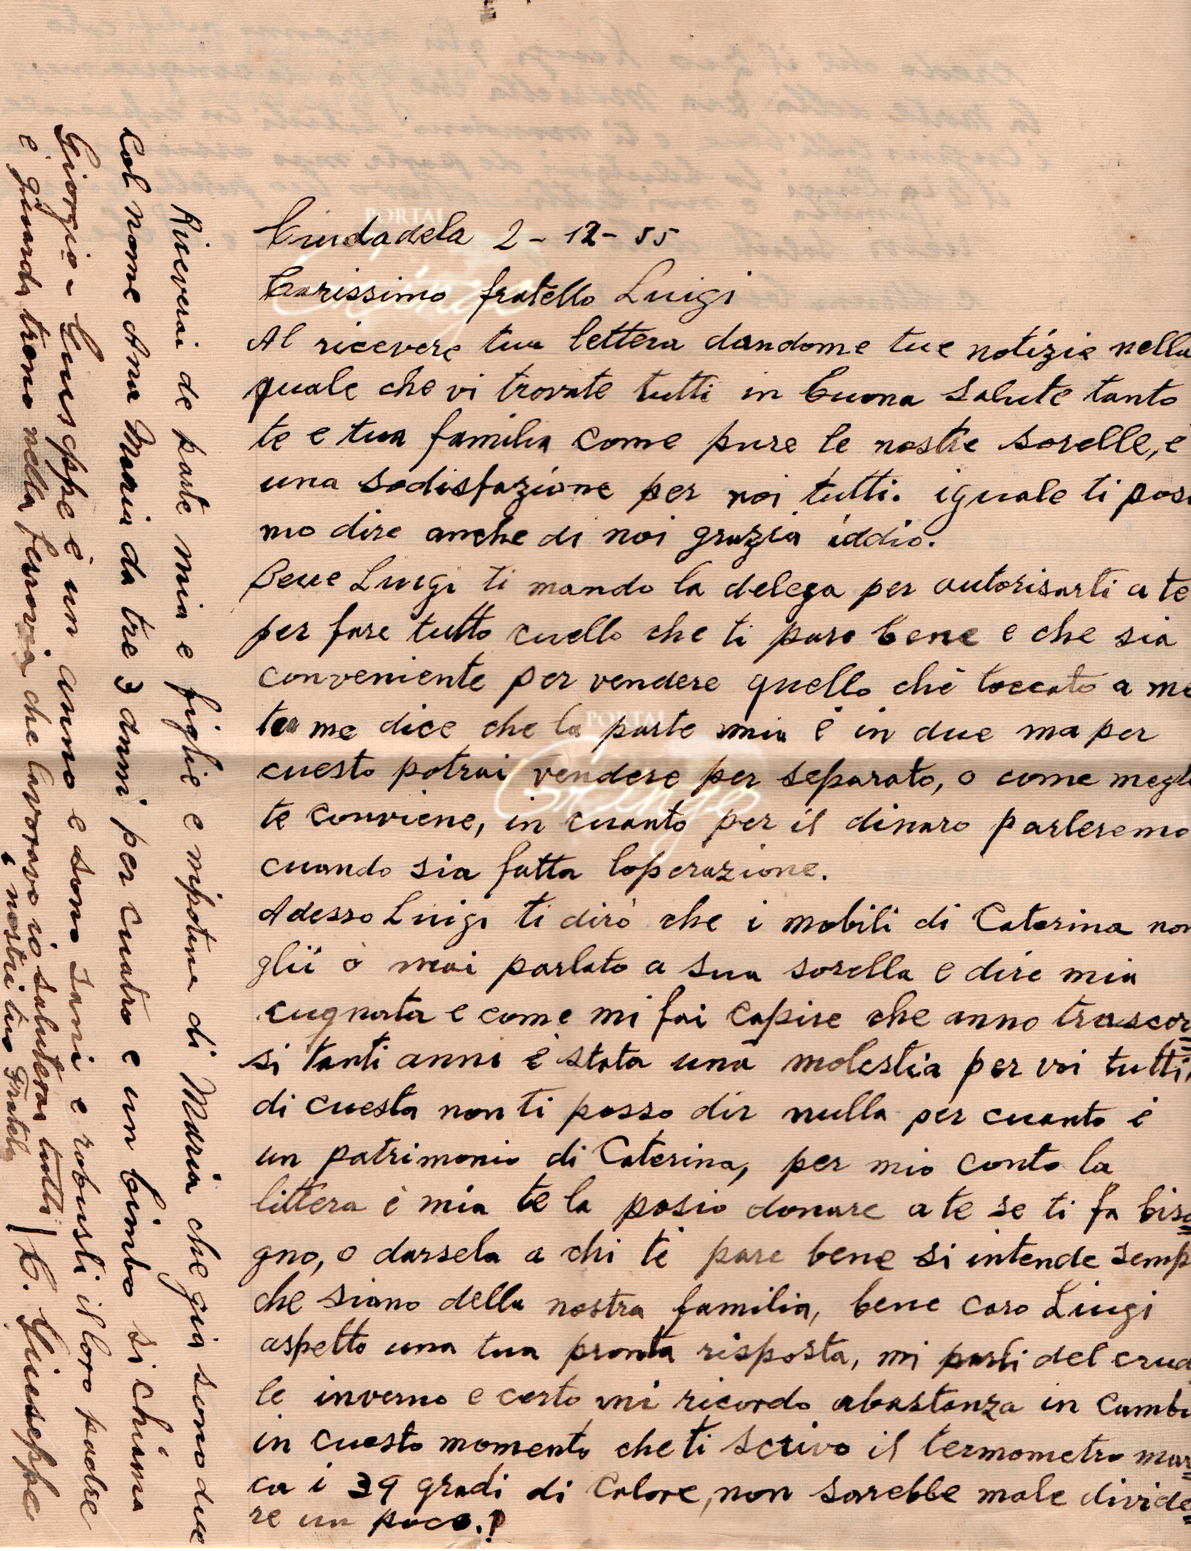 Ciudadela 2-12-55
Carissimo fratello Luigi
Al ricevere tua lettera dandome tue notizie nella
quale che vi trovate tutti in buona salute tanto
te e tua familia come pure le nostre sorelle, e
una sodisfazione per noi tutti. iguale ti posi
mo dire anche di noi grazia iddio.
Bene Luigi ti mando la delega per autorisarti a te
per fare tutto cuello che ti pare bene e che sia
conveniente per vendere quello che toccato a me
tu me dice che la parte mia è in due ma per
cuesto potrai vendere per separato, o come megl
te conviene, in cuanto per il dinaro parleremo
cuando sia fatta loperazione.
Adesso Luigi ti dirò che i mobili di Caterina non
glii ò mai parlato a sua sorella e dire mia
cugnata e come mi fai capire che anno trascor=
si tanti anni è stata una molestia per voi tutti,
di cuesta non ti posso dir nulla per cuanto è
un patrimonio di Caterina, per mio conto la
littera è mia te la posio donare a te se ti fa biso=
gno, o darsela a chi te pare bene si intende semp
che siano della nostra familia, bene caro Luigi
aspetto una tua pronta risposta, mi parli del crud
le inverno e certo mi ricordo abastanza in cambi
in cuesto momento che ti scrivo il termometro mar=
ca i 39 gradi di Calore, non sarebbe male divide=
re un poco.!
Riceverai de parte mia e figlie e nipotina di Maria che gia sono due
col nome Ana Maria da tre 3 anni per cuatro e un bimbo si chiama
Giorgio - Giuseppe è un anno e sono sani e robusti il loro padre
è guarda treno nella ferrovia che lavoravo io saluterai tutti
i nostri tuo Fratello
C. Giuseppe
PORTAL
Gringo
PORTAL
Gringo